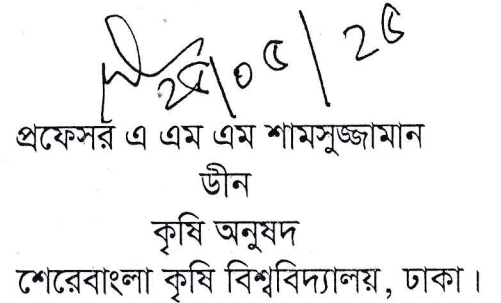 ২৫/০৫/২৫
প্রফেসর এ এম এম শামসুজ্জামান
ডীন
কৃষি অনুষদ
শেরেবাংলা কৃষি বিশ্ববিদ্যালয়, ঢাকা।